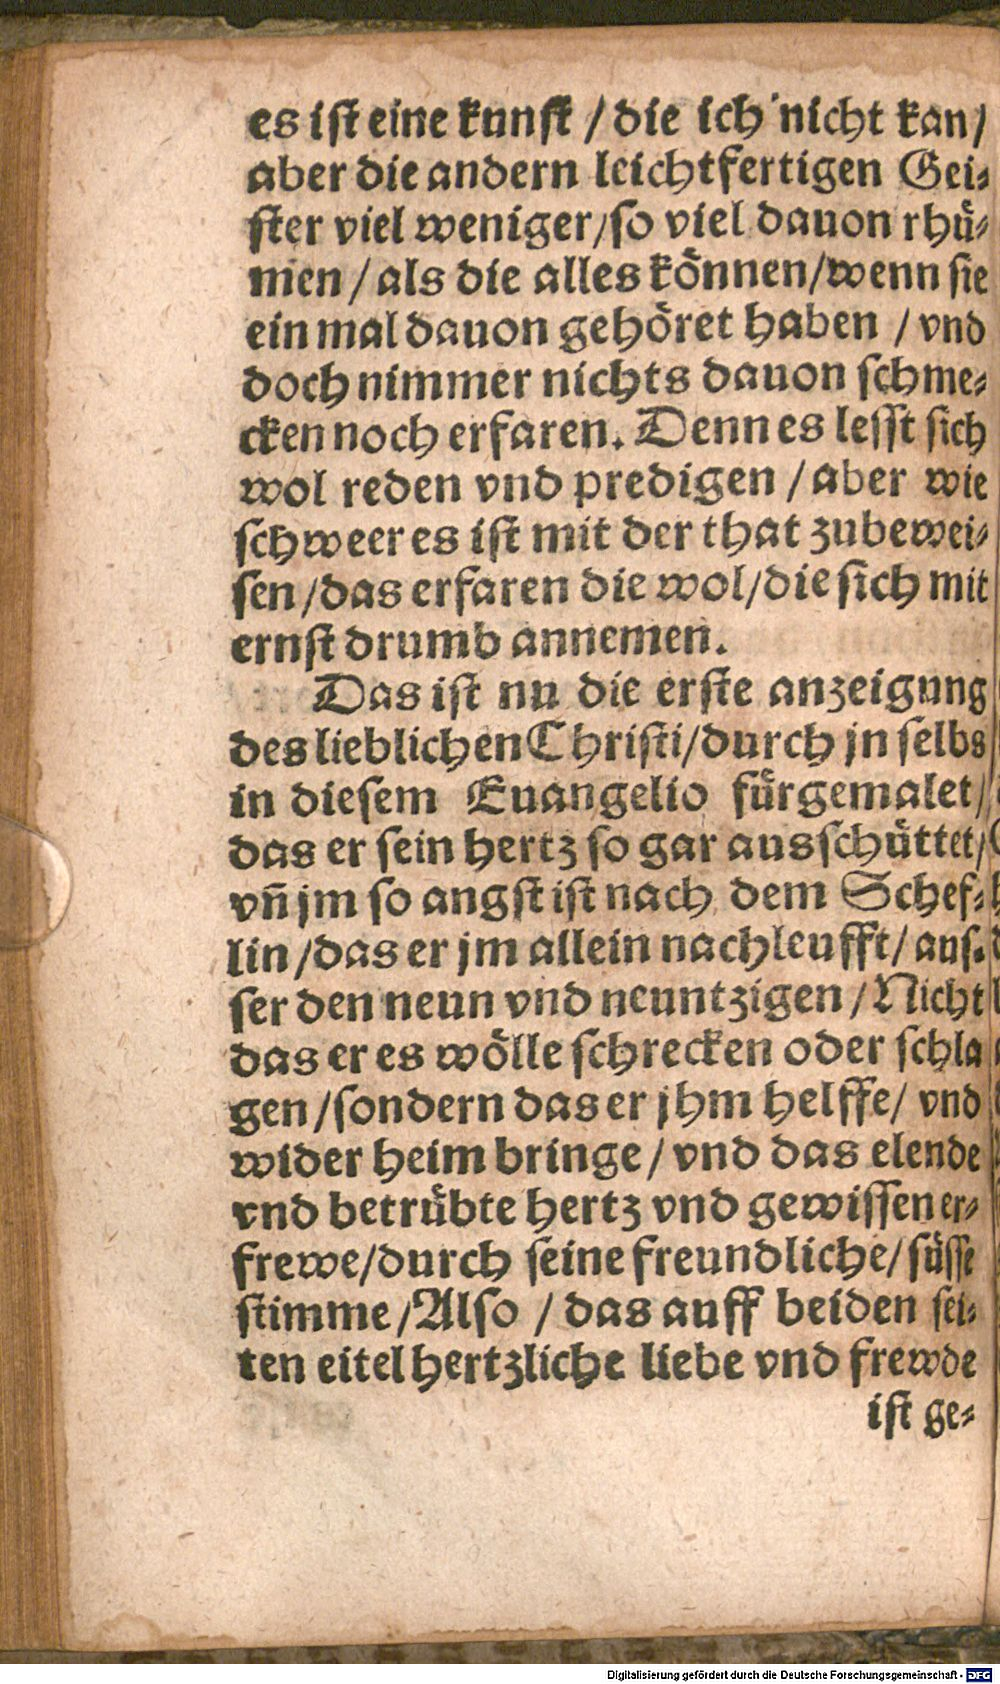 es ist eine kunst / die ich nicht kan /
aber die andern leichtfertigen Gei⸗
ster viel weniger / so viel dauon rhuͤ⸗
men / als die alles koͤnnen / wenn sie
ein mal dauon gehoͤret haben / vnd
doch nimmer nichts dauon schme⸗
cken noch erfaren. Denn es lesst sich
wol reden vnd predigen / aber wie
schweer es ist mit der that zubewei⸗
sen / das erfaren die wol / die sich mit
ernst drumb annemen.
Das ist nu die erste anzeigung
des lieblichen Christi / durch jn selbs
in diesem Euangelio fuͤrgemalet /
das er sein hertz so gar ausschuͤttet /
vn̄ jm so angst ist nach dem Schef⸗
lin / das er jm allein nachleufft / aus⸗
ser den neun vnd neuntzigen / Nicht
das er es woͤlle schrecken oder schla
gen / sondern das er jhm helffe / vnd
wider heim bringe / vnd das elende
vnd betruͤbte hertz vnd gewissen er⸗
frewe / durch seine freundliche / suͤsse
stimme / Also / das auff beiden sei⸗
ten eitel hertzliche liebe vnd frewde
ist ge⸗
Digitalisierung gefördert durch die Deutsche Forschungsgemeinschaft - DFG